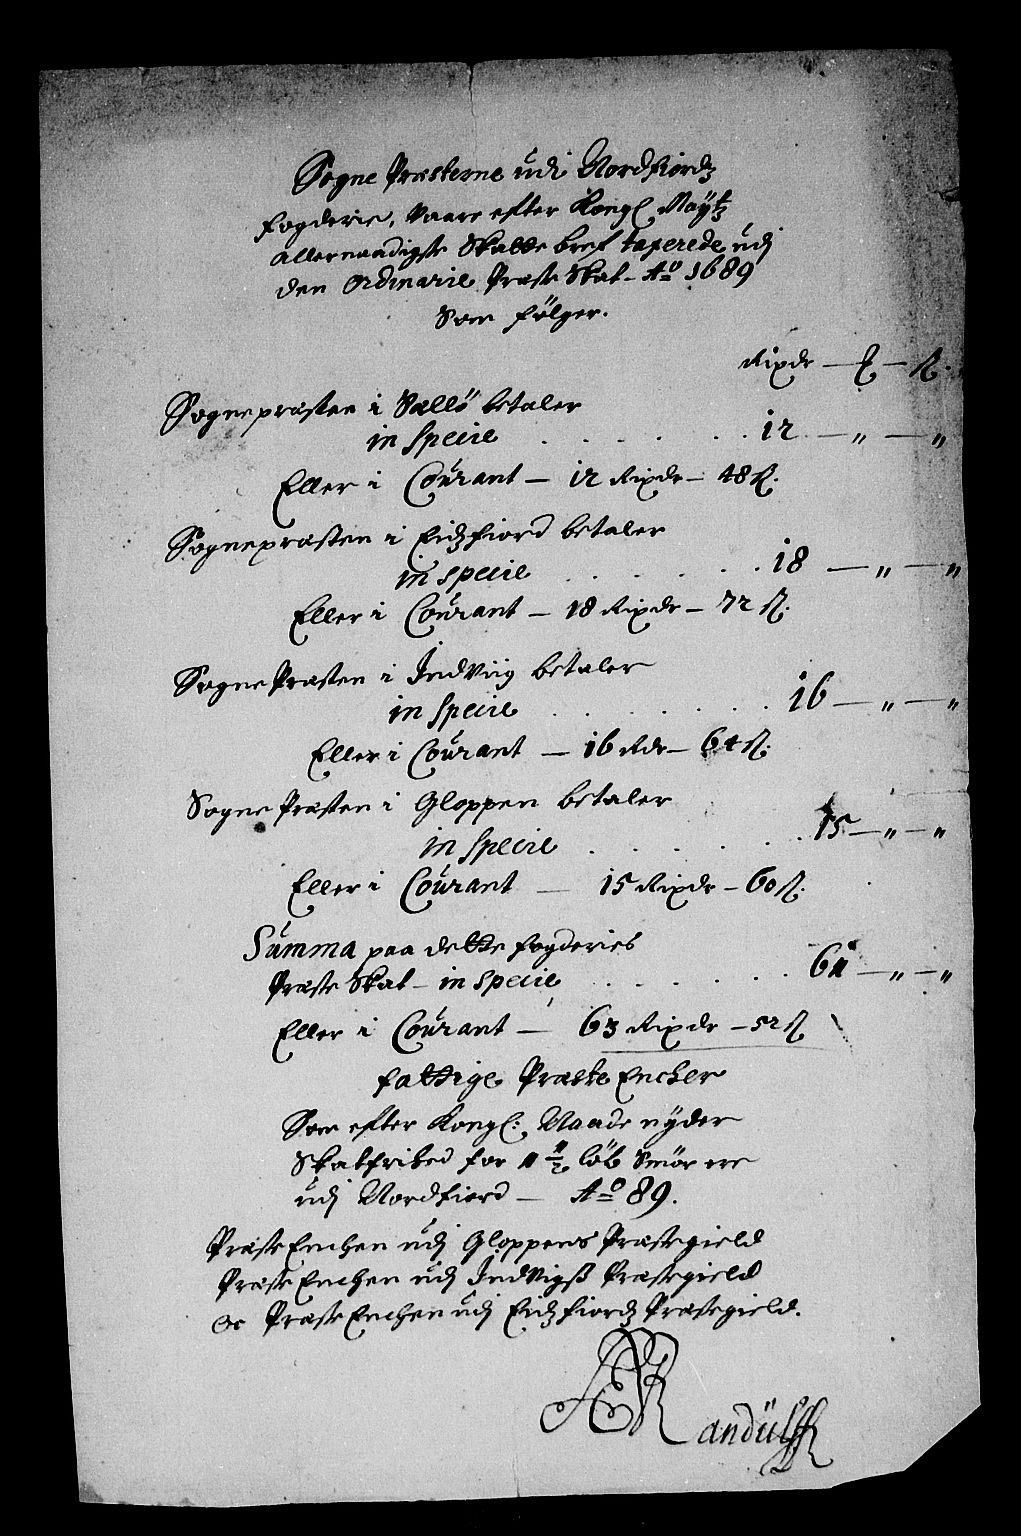 Sogne Præsterne udi Nordfiordz
fogderie, vaare efter Kongl Maytz
allernaadigste Skatte bref taxerede udj
den Ordinarie Præste Skat – Ao 1689
Som følger.
Rixdr — ₰ — ß.
Sognepræsten i Sællö betaler
in Specie . . . . . . 12 — „ — „
Eller i Courant — 12 Rixdr — 48 ß.
Sognepræsten i Eidzfiord betaler
in specie . . . . . 18 — „ — „
Eller i Courant — 18 Rixdr — 72 ß.
Sogne Præsten i Indviig betaler
in Specie . . . . . . 16 — „ — „
Eller i Courant — 16 Rdr — 64 ß.
Sogne Præsten i Gloppen betaler
in Specie . . . . . 15 — „ — „
Eller i Courant — 15 Rixdr — 60 ß.
Summa paa dette fogderies
Præste Skat – in specie . . . . . 61 — „ — „
Eller i Courant — 63 Rixdr — 52 ß
fattige Præste Encker
Som efter Kongl: Naade nyder
Skatfrihed for löb Smör
udj Nordfiord — Ao 89.
Præste Enchen udj Gloppens Præstegield
Præste Enchen udj Indvigß Præstegield
oc Præste Enchen udj Eidzfiordz Præstegield.
Randulff